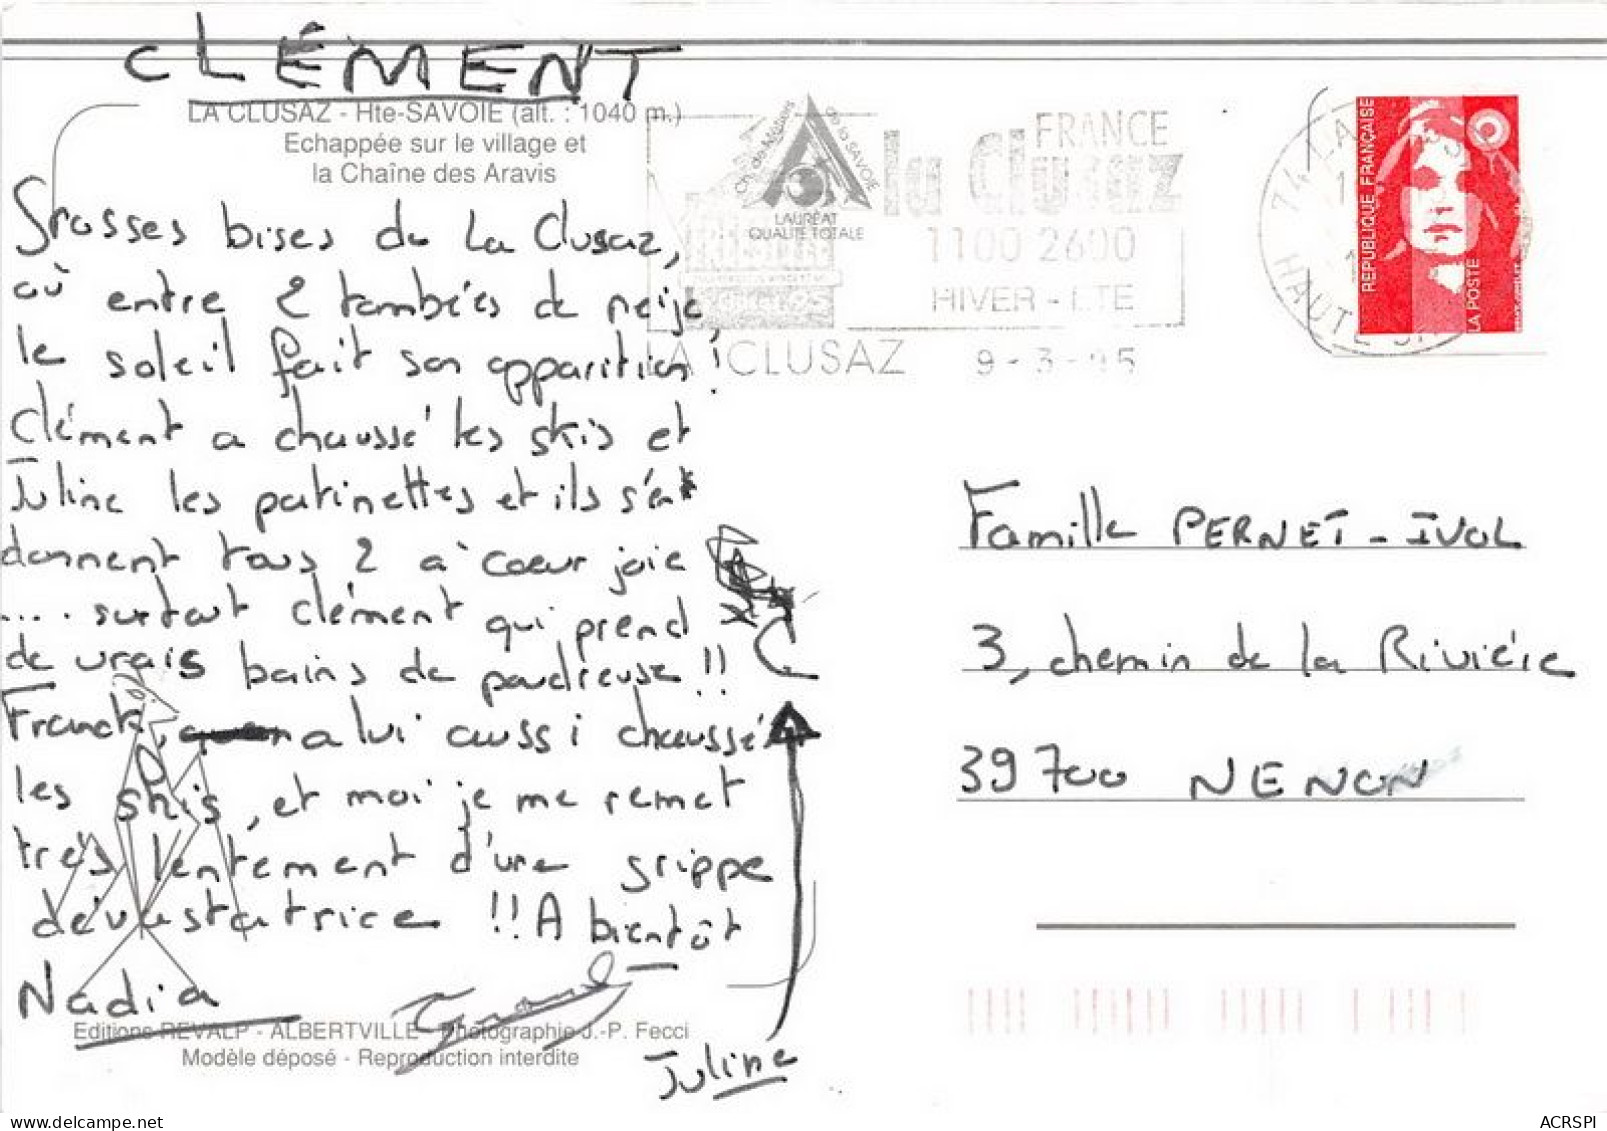 CLÉMENT
LA CLUSAZ - Hte-SAVOIE (alt. : 1040 m.)
Echappée sur le village et
la Chaîne des Aravis
Grosses bises de La Clusaz,
où entre 2 tombées de neige
le soleil fait son apparition !
Clément a chaussé les skis et
Juline les patinettes et ils s'en
donnent tous 2 à coeur joie
.... surtout Clément qui prend
de vrais bains de poudreuse !!
Franck, a lui aussi chaussé
les skis, et moi je me remet
très lentement d'une grippe
dévastatrice !! A bientôt
Nadia
Franck
Juline
Editions REVALP - ALBERTVILLE - Photographie J.-P. Fecci
Modèle déposé - Reproduction interdite
Ch. de Métiers de la SAVOIE
LAURÉAT
QUALITÉ TOTALE
FRANCE
la Clusaz
1100 2600
HIVER - ETE
LA CLUSAZ 9-3-95
74 LA
HAUTE
REPUBLIQUE FRANÇAISE
LA POSTE
Famille PERNET-IVOL
3, chemin de la Rivière
39700 NENON
ACRSPI